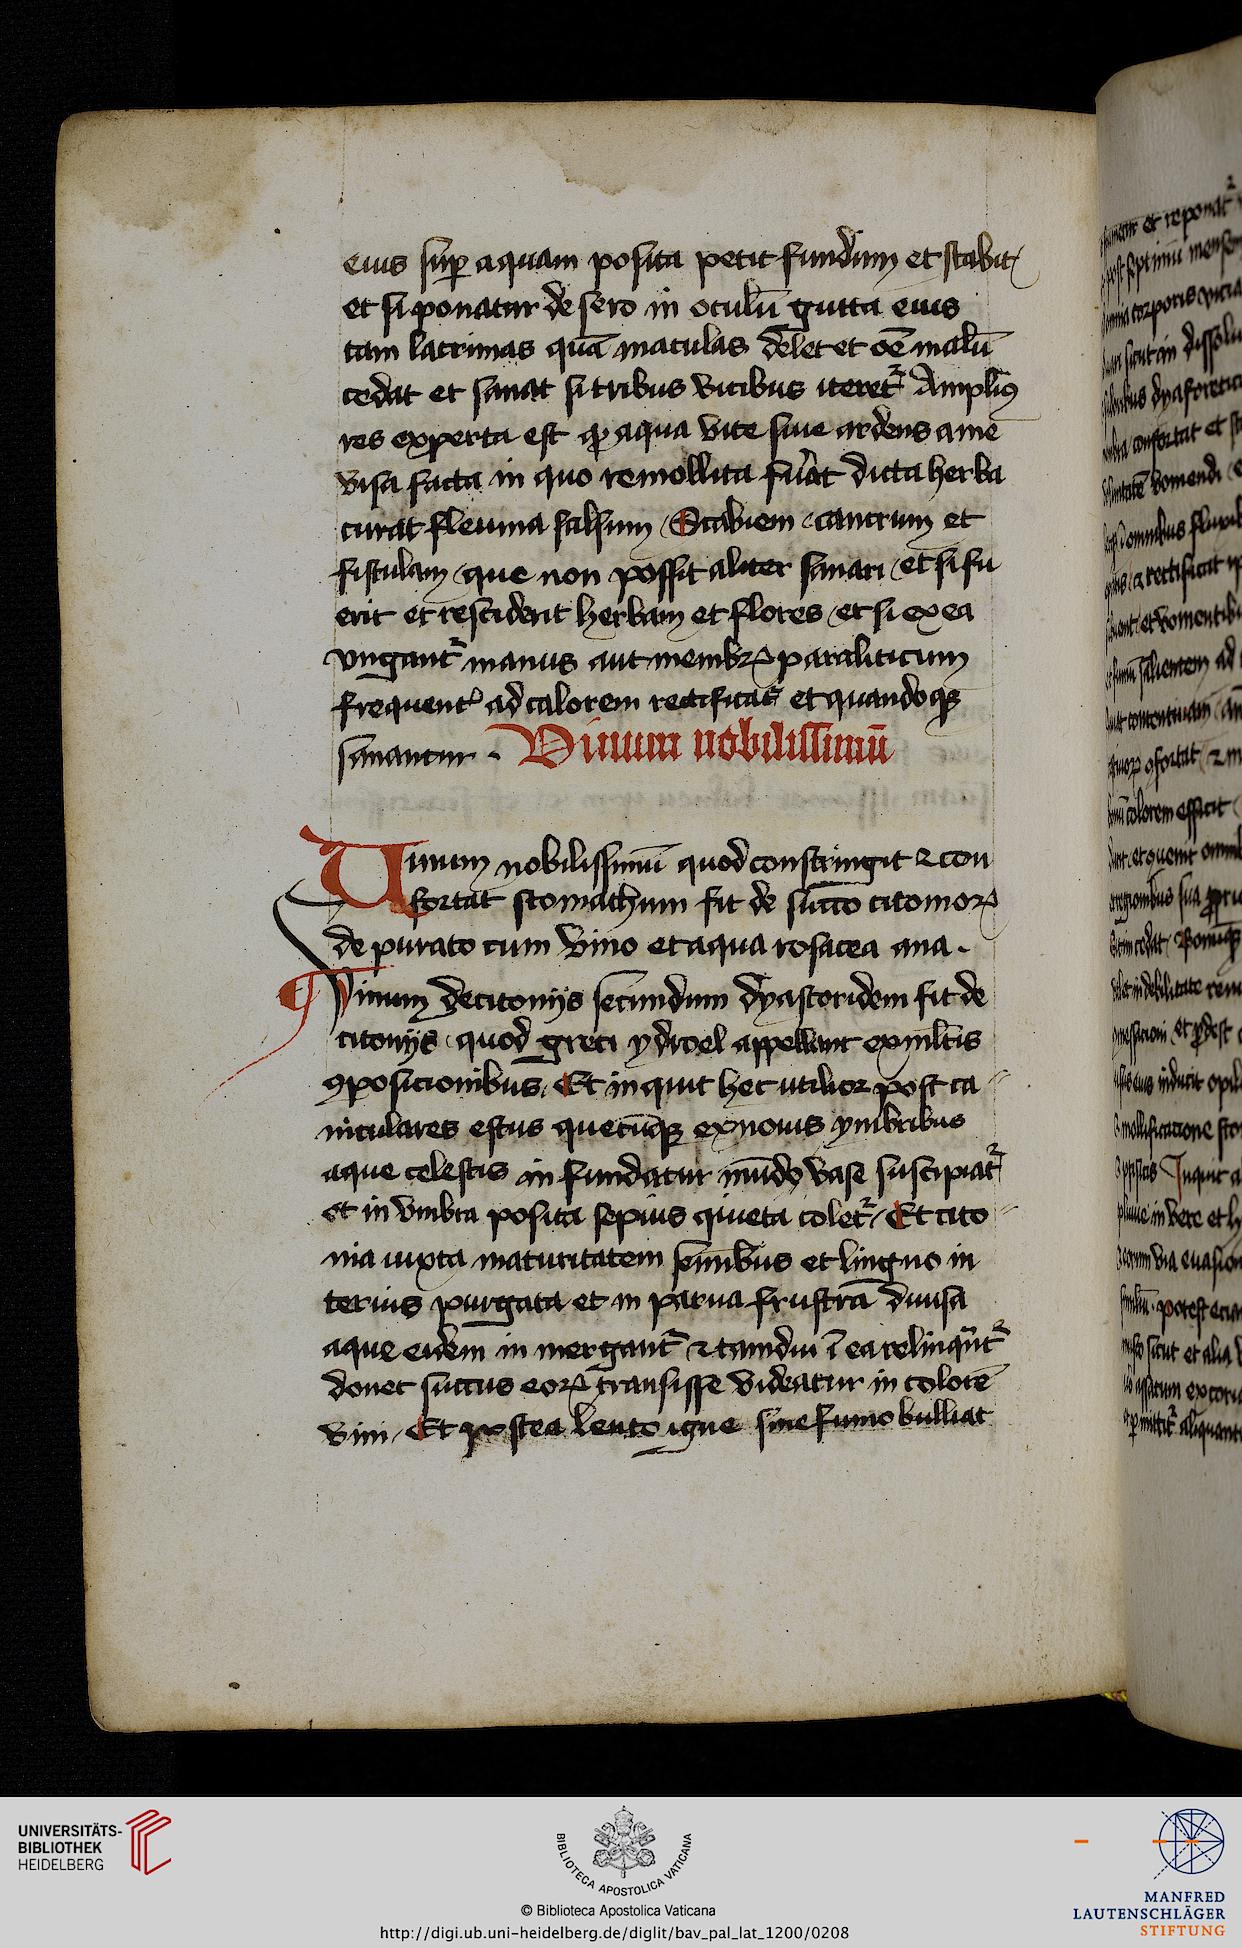 eius sup aquam posita petit fundum et stabit
et si ponatur de sero in oculū gutta eius
tam lacrimas quā maculas delet et oē malū
cedat et sanat si tribus vicibus iteret Ampliꝰ
res experta est ꝙ aqua vite siue ardens a me
visa facta in quo remollita fuat dicta herba
curat fleuma salsum Scabiem cancrum et
fistulam que non possit aliter sanari et si fu
erit et resciderit herbam et flores et si ex ea
vngant manus aut membꝝ paraliticum
frequent ad calorem rectificat et quandoqꝫ
sanantur . Vinum nobilissimū
Uinum nobilissimū quod constringit ⁊ con
fortat stomachum fit de succo citomoꝝ
de purato cum vino et aqua rosacea ana .
Vinum de citonijs secundum dyascoridem fit de
citonijs quod greci ydroel appellant ex multis
ꝯposicionibus Et inquit hec utilior post ca
niculares estus quecūqꝫ ex nouis ymbribus
aque celestis in fundatur mūdo vase suscipiat
et in vmbra posita sepius quieta colet Et cito
nia iuxta maturitatem seminibus et linguo in
terius purgata et in parua frustra diuisa
aque eidem in mergant ⁊ tamdiu ī ea relinqūt
donec succus eoꝝ transisse videatur in colorē
vini Et postea lento igne sine fumo bulliat
UNIVERSITÄTS-
BIBLIOTHEK
HEIDELBERG
BIBLIOTECA APOSTOLICA VATICANA
© Biblioteca Apostolica Vaticana
http://digi.ub.uni-heidelberg.de/diglit/bav_pal_lat_1200/0208
MANFRED
LAUTENSCHLÄGER
STIFTUNG